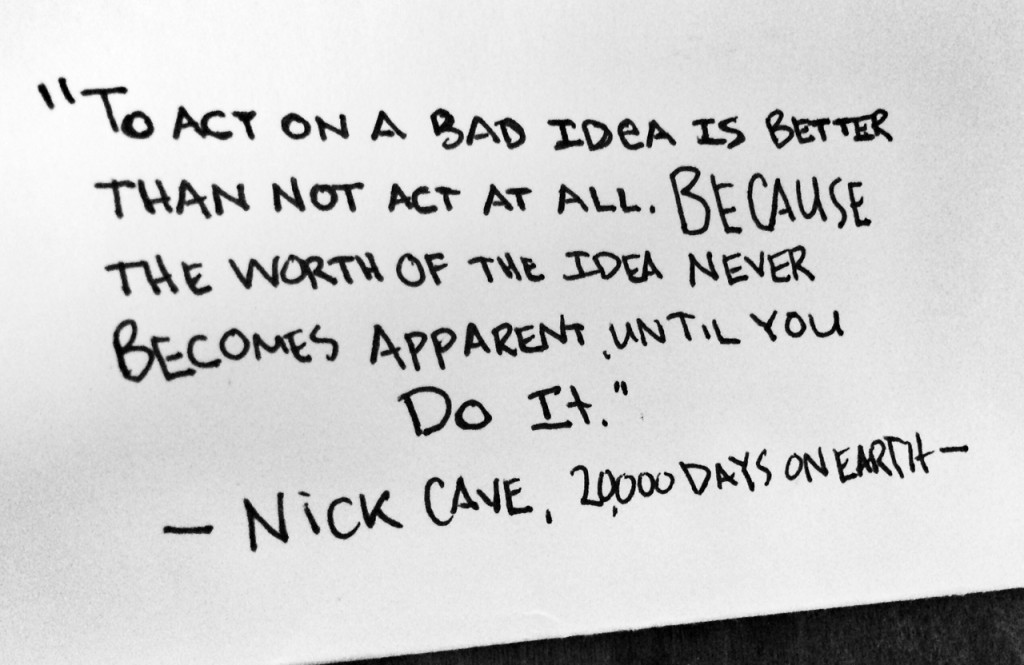 "To ACT ON A BAD IDeA IS BETTER
THAN NOT ACT AT ALL. BECAUSE
THE WORTH OF THE IDEA NEVER
BECOMES APPARENT, UNTIL YOU
Do It."
— NiCK CAVE, 20,000 DAYS ON EARTH —